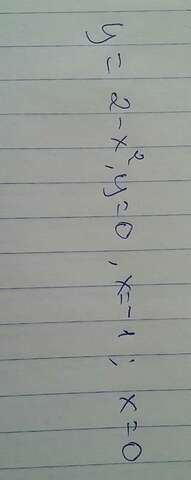 y = 2 - x², y = 0, x = -1; x = 0